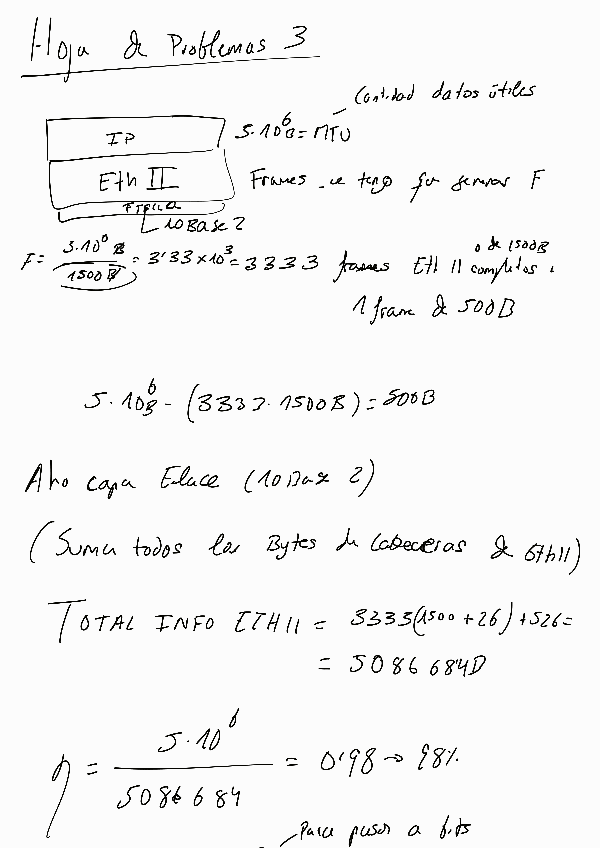 Hoja de Problemas 3
Cantidad datos útiles
IP 5·10⁶B = MTU
Eth II Frames que tengo que generar F
Física
10Base2
F = 5·10⁶ B / 1500 B = 3'33 × 10³ = 3333 frames Eth II completos o de 1500B
1 frame de 500B
5·10⁶B - (3333·1500B) = 500B
capa Enlace (10Base 2)
(Suma todos los Bytes de Cabeceras de Eth II)
TOTAL INFO ETH II = 3333(1500 + 26) + 526 =
= 5086684B
η = 5·10⁶ / 5086684 = 0'98 → 98%
Para pasar a bits